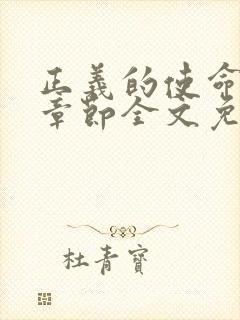 正義的使命
章節全文免
杜青寶